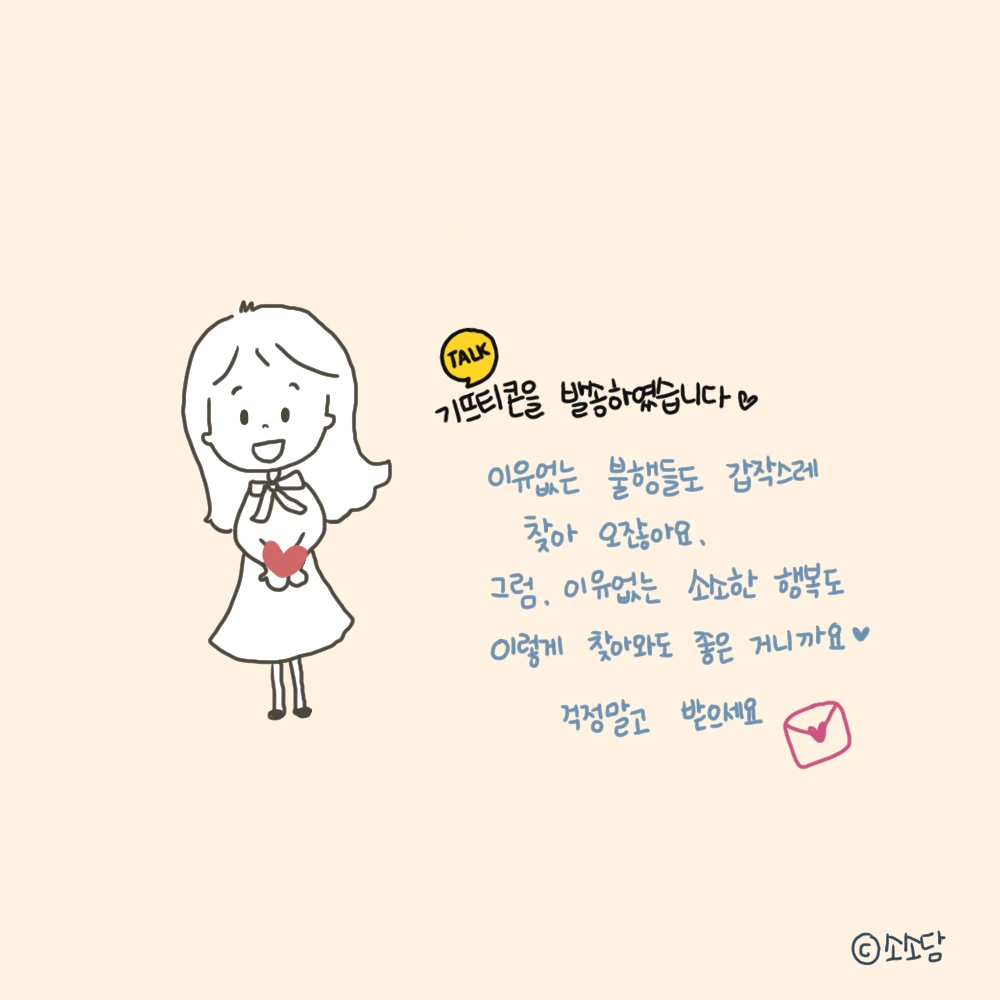 TALK
기쁘티콘을 발송하였습니다♡
이유없는 불행들도 갑작스레
찾아 오잖아요.
그럼, 이유없는 소소한 행복도
이렇게 찾아와도 좋은 거니까요♥
걱정말고 받으세요
©소소담